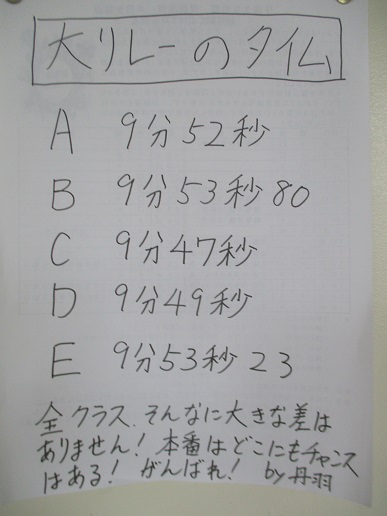 大リレーのタイム
A 9分52秒
B 9分53秒80
C 9分47秒
D 9分49秒
E 9分53秒23
全クラス、そんなに大きな差は
ありません！本番はどこにもチャンス
はある！がんばれ！ by丹羽